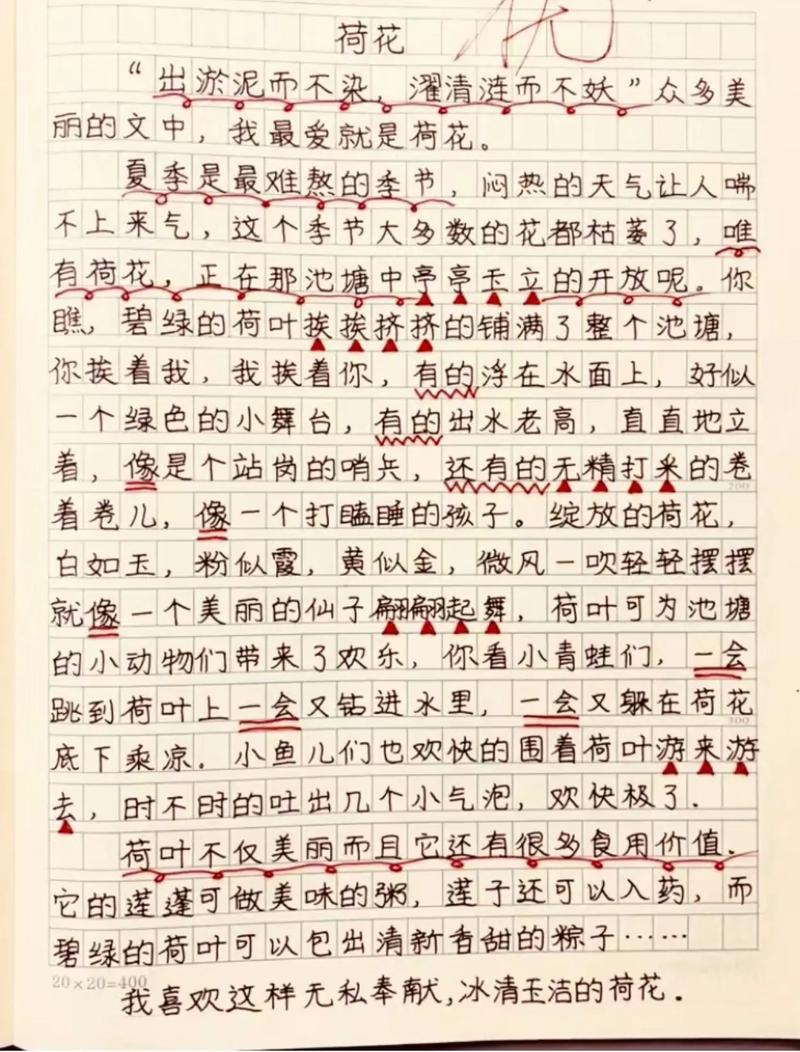 荷花
“出淤泥而不染，濯清涟而不妖”众多美
丽的文中，我最爱就是荷花。
夏季是最难熬的季节，闷热的天气让人喘
不上来气，这个季节大多数的花都枯萎了，唯
有荷花，正在那池塘中亭亭玉立的开放呢。你
瞧，碧绿的荷叶挨挨挤挤的铺满了整个池塘，
你挨着我，我挨着你，有的浮在水面上，好似
一个绿色的小舞台，有的出水老高，直直地立
着，像是个站岗的哨兵，还有的无精打采的卷
200
着卷儿，像一个打瞌睡的孩子。绽放的荷花，
白如玉，粉似霞，黄似金，微风一吹轻轻摆摆
就像一个美丽的仙子翩翩起舞，荷叶可为池塘
的小动物们带来了欢乐，你看小青蛙们，一会
跳到荷叶上一会又钻进水里，一会又躲在荷花
300
底下乘凉．小鱼儿们也欢快的围着荷叶游来游
去，时不时的吐出几个小气泡，欢快极了．
荷叶不仅美丽而且它还有很多食用价值．
它的莲蓬可做美味的粥，莲子还可以入药，而
碧绿的荷叶可以包出清新香甜的粽子……
20×20=400
我喜欢这样无私奉献,冰清玉洁的荷花．